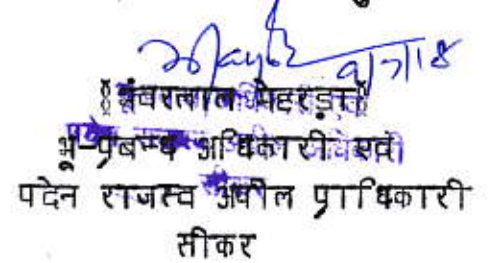 9/7/18
(भंवरलाल मेहरड़ा)
भू-प्रबन्ध अधिकारी एवं
पदेन राजस्व अपील प्राधिकारी
सीकर